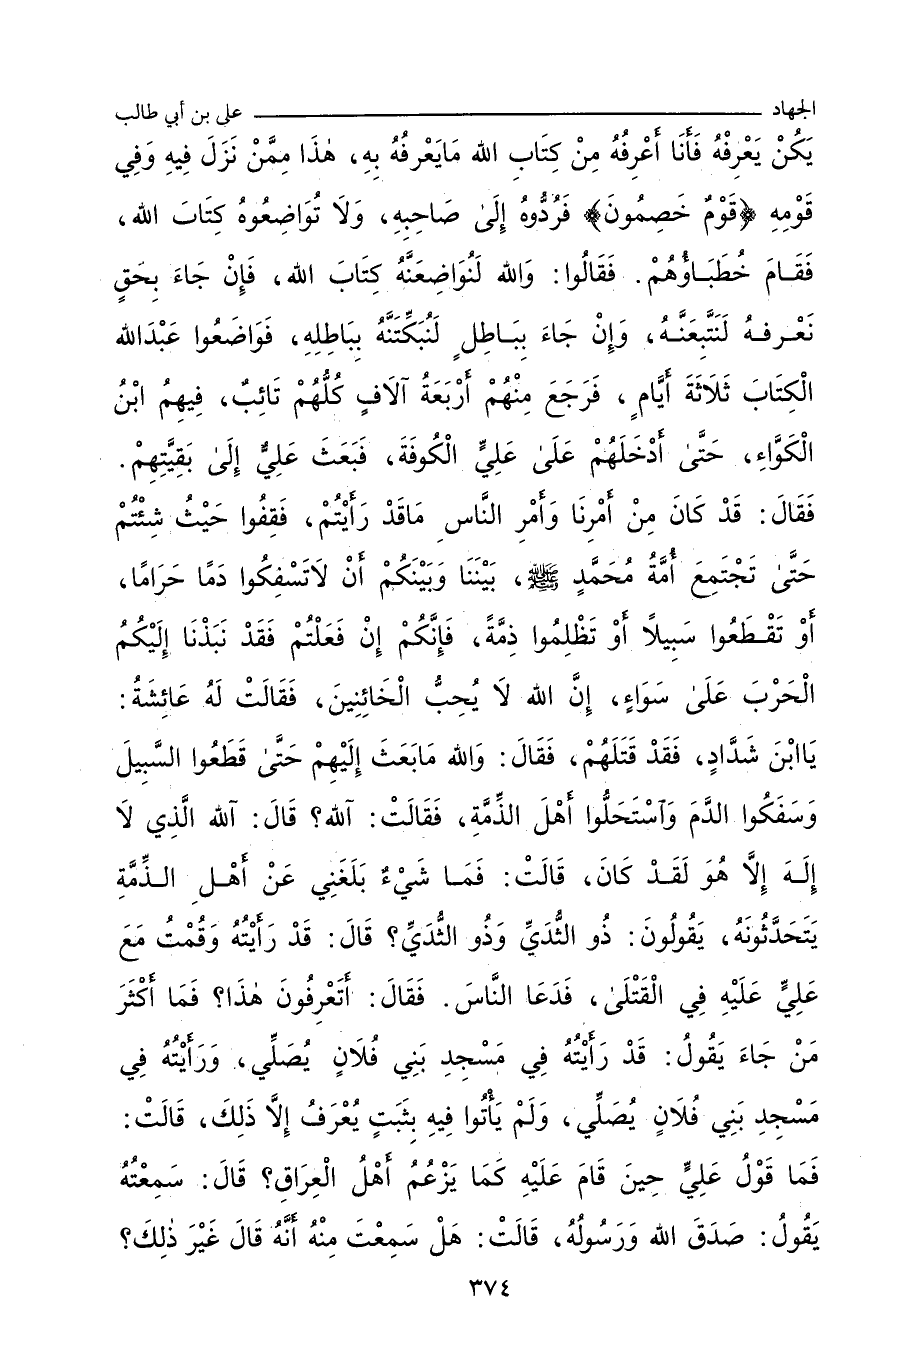 الجهاد ــــــــــــــــــــــــ علي بن أبي طالب
يَكُنْ يَعْرِفْهُ فَأَنَا أَعْرِفُهُ مِنْ كِتَابِ الله مَايَعْرِفُهُ بِهِ، هٰذَا مِمَّنْ نَزَلَ فِيهِ وَفِي
قَوْمِهِ ﴿قَوْمٌ خَصِمُونَ﴾ فَرُدُّوهُ إِلَىٰ صَاحِبِهِ، وَلَا تُوَاضِعُوهُ كِتَابَ الله،
فَقَامَ خُطَبَاؤُهُمْ. فَقَالُوا: وَالله لَنُوَاضِعَنَّهُ كِتَابَ الله، فَإِنْ جَاءَ بِحَقٍ
نَعْرِفهُ لَنَتَّبِعَنَّهُ، وَإِنْ جَاءَ بِبَاطِلٍ لَنُبَكِّتَنَّهُ بِبَاطِلِهِ، فَوَاضَعُوا عَبْدَالله
الْكِتَابَ ثَلَاثَةَ أَيَّامٍ، فَرَجَعَ مِنْهُمْ أَرْبَعَةُ آلَافٍ كُلُّهُمْ تَائِبٌ، فِيهِمُ ابْنُ
الْكَوَّاءِ، حَتَّىٰ أَدْخَلَهُمْ عَلَىٰ عَلِيٍّ الْكُوفَةَ، فَبَعَثَ عَلِيٌّ إِلَىٰ بَقِيَّتِهِمْ.
فَقَالَ: قَدْ كَانَ مِنْ أَمْرِنَا وَأَمْرِ النَّاسِ مَاقَدْ رَأَيْتُمْ، فَقِفُوا حَيْثُ شِئْتُمْ
حَتَّىٰ تَجْتَمِعَ أُمَّةُ مُحَمَّدٍ ﷺ، بَيْنَنَا وَبَيْنَكُمْ أَنْ لَاتَسْفِكُوا دَمًا حَرَامًا،
أَوْ تَقْطَعُوا سَبِيلاً أَوْ تَظْلِمُوا ذِمَّةً، فَإِنَّكُمْ إِنْ فَعَلْتُمْ فَقَدْ نَبَذْنَا إِلَيْكُمُ
الْحَرْبَ عَلَىٰ سَوَاءٍ، إِنَّ الله لَا يُحِبُّ الْخَائِنِينَ، فَقَالَتْ لَهُ عَائِشَةُ:
يَاابْنَ شَدَّادٍ، فَقَدْ قَتَلَهُمْ، فَقَالَ: وَالله مَابَعَثَ إِلَيْهِمْ حَتَّىٰ قَطَعُوا السَّبِيلَ
وَسَفَكُوا الدَّمَ وَآسْتَحَلُّوا أَهْلَ الذِّمَّةِ، فَقَالَتْ: آلله؟ قَالَ: آلله الَّذِي لَا
إِلَهَ إِلَّا هُوَ لَقَدْ كَانَ، قَالَتْ: فَمَا شَيْءٌ بَلَغَنِي عَنْ أَهْلِ الذِّمَّةِ
يَتَحَدَّثُونَهُ، يَقُولُونَ: ذُو الثُّدَيِّ وَذُو الثُّدَيِّ؟ قَالَ: قَدْ رَأَيْتُهُ وَقُمْتُ مَعَ
عَلِيٍّ عَلَيْهِ فِي الْقَتْلَىٰ، فَدَعَا النَّاسَ. فَقَالَ: أَتَعْرِفُونَ هٰذَا؟ فَمَا أَكْثَرَ
مَنْ جَاءَ يَقُولُ: قَدْ رَأَيْتُهُ فِي مَسْجِدِ بَنِي فُلَانٍ يُصَلِّي، وَرَأَيْتُهُ فِي
مَسْجِدِ بَنِي فُلَانٍ يُصَلِّي، وَلَمْ يَأْتُوا فِيهِ بِثَبَتٍ يُعْرَفُ إِلَّا ذَلِكَ، قَالَتْ:
فَمَا قَوْلُ عَلِيٍّ حِينَ قَامَ عَلَيْهِ كَمَا يَزْعُمُ أَهْلُ الْعِرَاقِ؟ قَالَ: سَمِعْتُهُ
يَقُولُ: صَدَقَ الله وَرَسُولُهُ، قَالَتْ: هَلْ سَمِعْتَ مِنْهُ أَنَّهُ قَالَ غَيْرَ ذٰلِكَ؟
٣٧٤